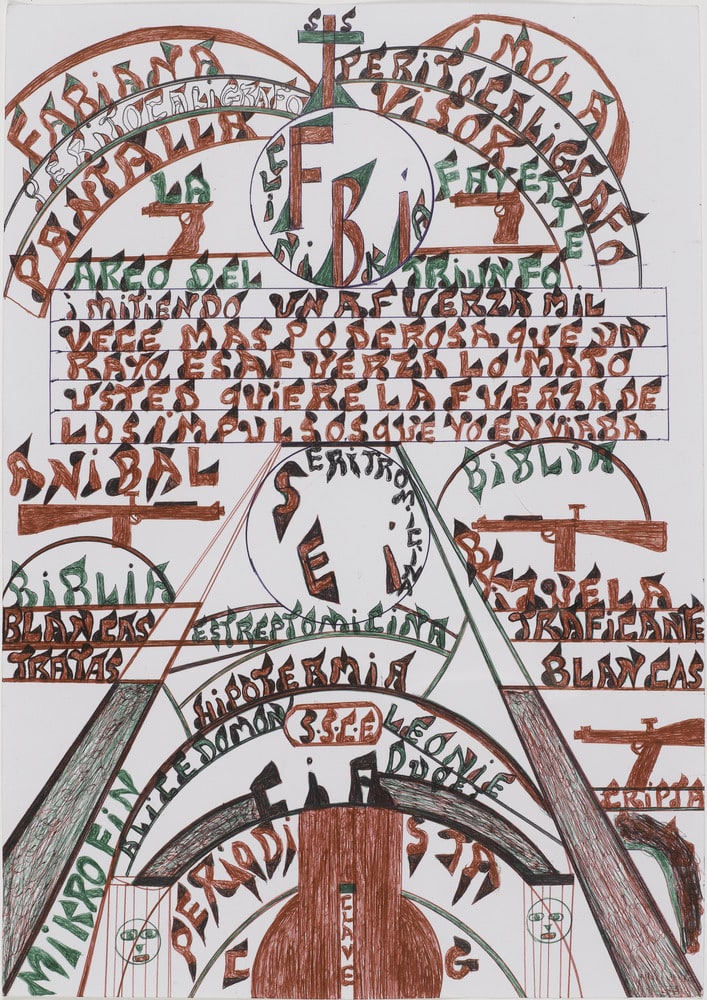 S S
FABIANA
IMOLA
PERITOCALIGRAFO
PERITOCALIGRAFO
PANTALLA
VISOR
LA
FAYETTE
CLINIKA
FBI
ARCO DEL TRIUNFO
iMITIENDO UNA FUERZA MIL
VECE MAS PODEROSA QUE UN
RAYO ESA FUERZA LO MATO
USTED QUIERE LA FUERZA DE
LOS IMPULSOS QUE YO ENVIABA
ANIBAL
BIBLIA
ERITROMICINA
SEI
BIBLIA
BLANCAS
TRATAS
TRAFICANTE
BLANCAS
ESTREPTOMICINA
HIPOTERMIA
S.S.C.F
ALICE DOMON
LEONIE
DUQET
CIA
CRIPTA
MIKROFIN
PERIODISTA
CLAVE
C G